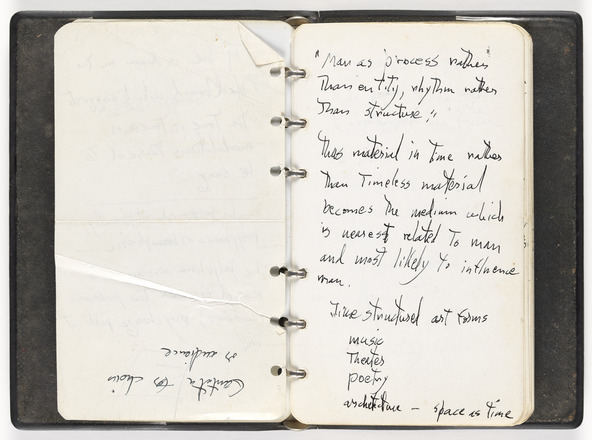 Cantata to choir
or audience
"Man as process rather
Than entity, rhythm rather
Than structure."
Thus material in Time rather
Than Timeless material
becomes The medium which
is nearest related To man
and most likely to influence
man.
Time structured art forms
music
Theater
poetry
architecture – space is time